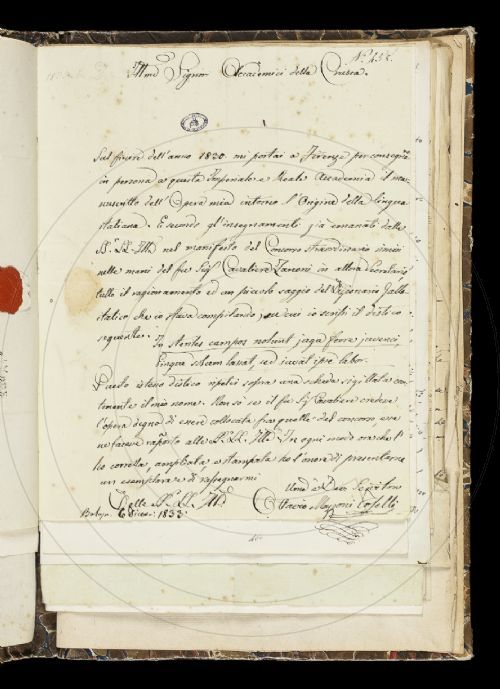 N.° 435.
Ill.mi Signori Accademici della Crusca.
Sul finire dell'anno 1830 mi portai a Firenze per consegnare
in persona a questa Imperiale e Reale Accademia il ma-
nuscritto dell'Opera mia intorno l'Origine della lingua
italiana. E secondo gl'insegnamenti già emanati dalle
SS.e LL. Ill.e nel manifesto del Concorso straordinario rimisi
nelle mani del fu Sig.r Cavaliere Zannoni in allora Secretario
tutto il ragionamento ed un piccolo saggio del Dizionario Gallo
italico che io stava compilando, su cui io scrissi il distico
seguente.
In steriles campos nolunt juga ferre juvenci,
Pingue solum lassat, sed juvat ipse labor.
Questo istesso distico ripetei sopra una scheda sigillata con-
tenente il mio nome. Non so se il fu Sig.r Cavaliere credesse
l'opera degna di essere collocata fra quelle del concorso, e se
ne facesse rapporto alle SS. LL. Ill.e In ogni modo ora che l'
ho corretta, ampliata, e stampata ho l'onore di presentarne
un esemplare e di rassegnarmi
Delle SS. LL. Ill.e
Bologna 6 1833.
Umo e Devo Servitore
Ottavio Mazzoni Toselli